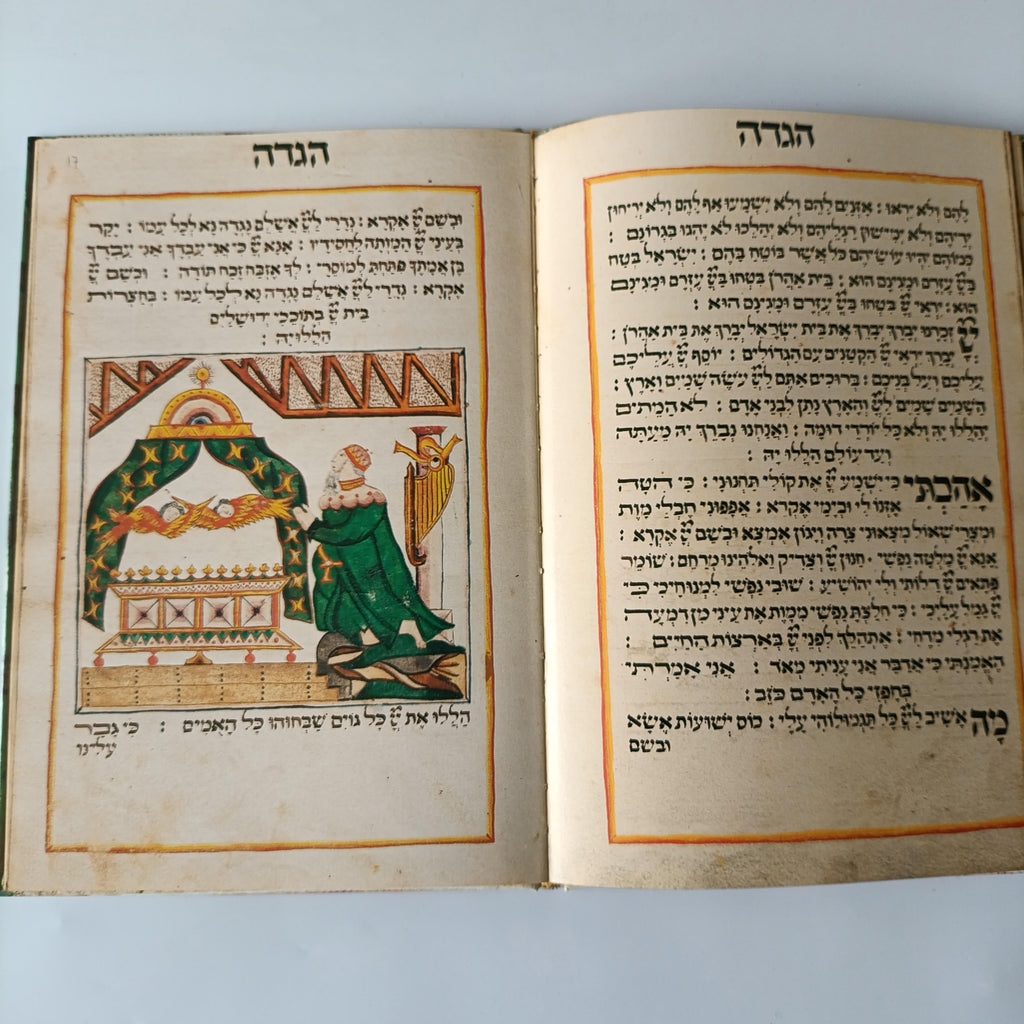 הגדה
להם ולא יראו : אזנים להם ולא ישמיעו אף להם ולא יריחון
ידיהם ולא ימישון רגליהם ולא יהלכו לא יהגו בגרונם :
כמוהם יהיו עושיהם כל אשר בוטח בהם : ישראל בטח
ביי עזרם ומגינם הוא : בית אהרן בטחו ביי עזרם ומגינם
הוא : יראי יי בטחו ביי עזרם ומגינם הוא :
יי זכרנו יברך יברך את בית ישראל יברך את בית אהרן :
יברך יראי יי הקטנים עם הגדולים : יוסף יי עליכם
עליכם ועל בניכם : ברוכים אתם ליי עשה שמים וארץ :
השמים שמים ליי והארץ נתן לבני אדם : לא המתים
יהללו יה ולא כל יורדי דומה : ואנחנו נברך יה מעתה
ועד עולם הללו יה :
אהבתי כי ישמיע יי את קולי תחנוני : כי הטה
אזנו לי ובימי אקרא : אפפוני חבלי מות
ומצרי שאול מצאוני צרה ויגון אמצא ובשם יי אקרא :
אנא יי מלטה נפשי : חנון יי וצדיק ואלהינו מרחם : שומר
פתאים יי דלותי ולי יהושיע : שובי נפשי למנוחיכי כי
יי גמל עליכי : כי חלצת נפשי ממות את עיני מן דמעה
את רגלי מדחי : אתהלך לפני יי בארצות החיים :
האמנתי כי אדבר אני עניתי מאד : אני אמרתי
בחפזי כל האדם כזב :
מה אשיב ליי כל תגמולוהי עלי : כוס ישועות אשא
ובשם
הגדה
17
ובשם יי אקרא : נדרי ליי אשלם נגדה נא לכל עמו : יקר
בעיני יי המותה לחסידיו : אנא יי כי אני עבדך אני עבדך
בן אמתך פתחת למוסרי : לך אזבח זבח תודה : ובשם יי
אקרא : נדרי ליי אשלם נגדה נא לכל עמו : בחצרות
בית יי בתוככי ירושלים
הללויה :
הללו את יי כל גוים שבחוהו כל האמים : כי גבר
עלינו